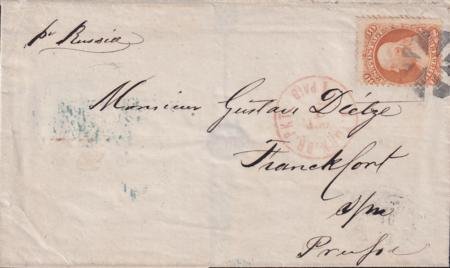 pr Russia
Monsieur Gustav Dietze
Franckfort
s/m
Preussen
PAID